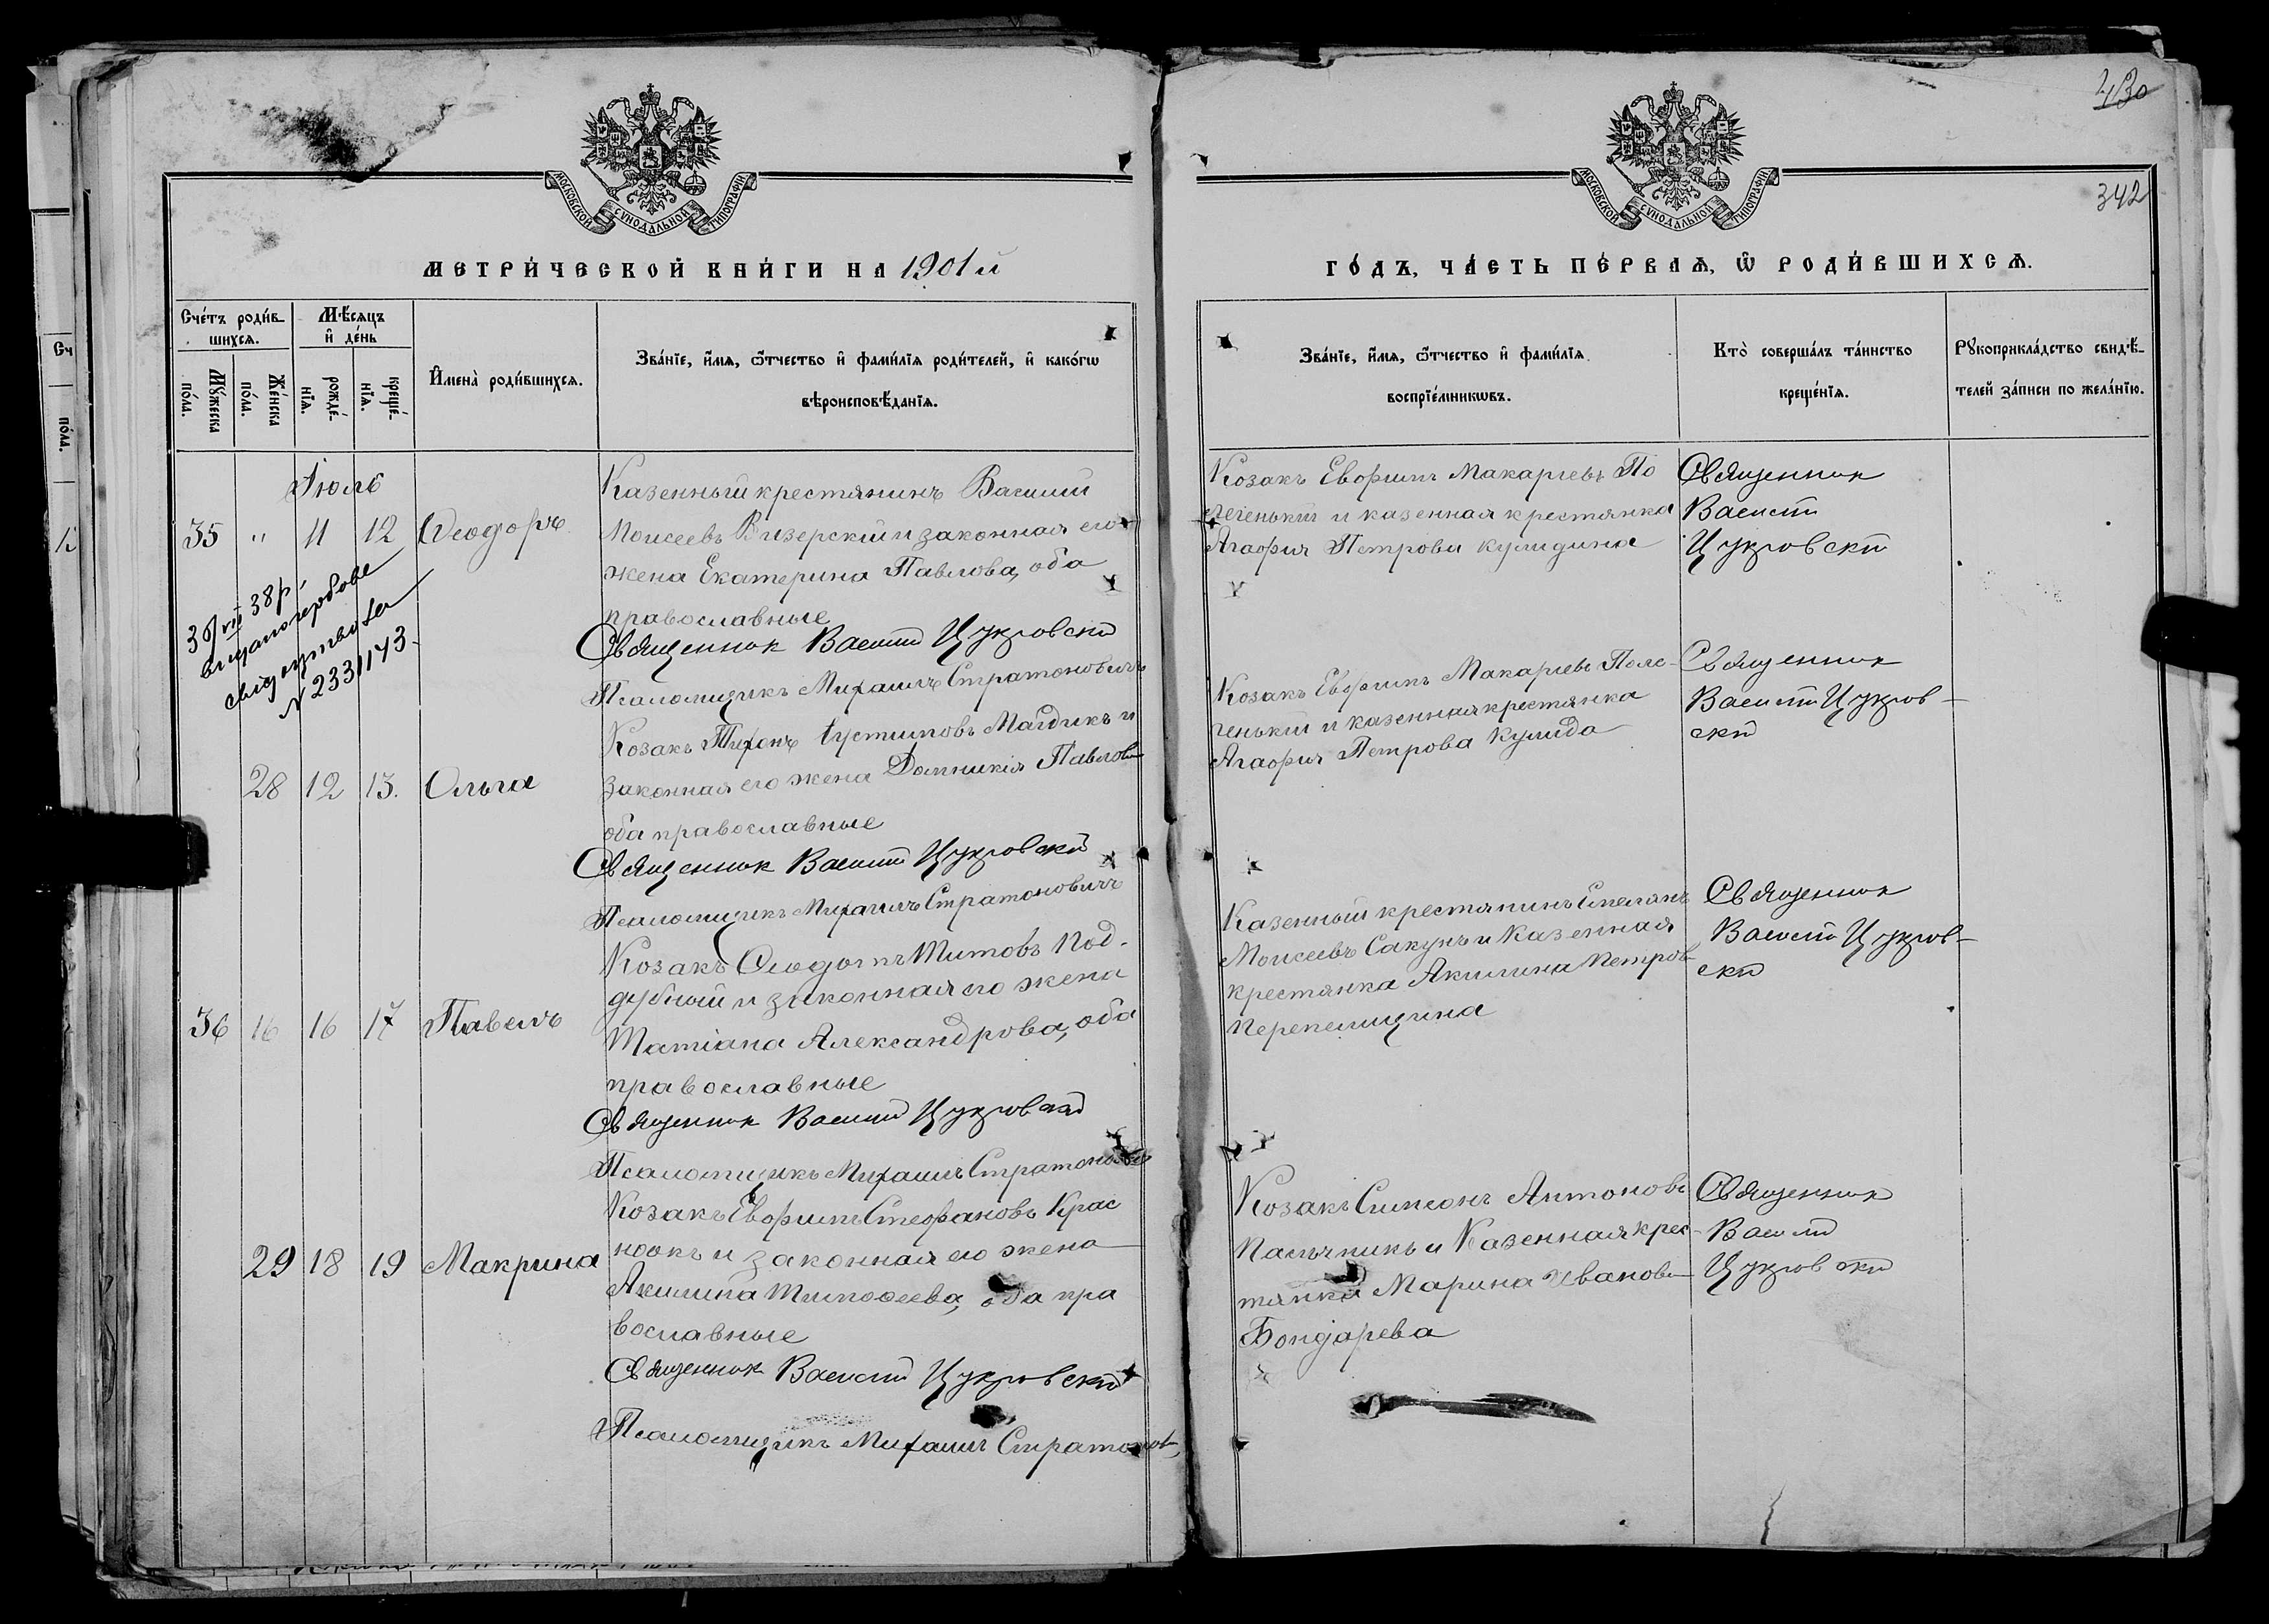 430
342
МОСКОВСКОЙ СѴНОДАЛЬНОЙ ТИПОГРАФІИ
МЕТРИ́ЧЕСКОЙ КНИ́ГИ НА 1901 й
Сче́тъ роди́в-
шихсѧ.
Мѣ́сѧцъ
и҆ де́нь
Мꙋ́жеска
по́ла.
Же́нска
по́ла.
рожде́-
нїѧ.
креще́-
нїѧ.
И҆мена̀ роди́вшихсѧ.
Зва́нїе, и҆́мѧ, ѻ҆́тчество и҆ фами́лїѧ роди́телей, и҆ како́гѡ
вѣроисповѣ́данїѧ.
Іюль
35 " 11 12 Ѳеодоръ
Казенный крестянинъ Василий
Моисеевъ Визерскій и законная его
жена Екатерина Павлова, оба
православные
Священник Василий Цукровский
Псаломщикъ Михаилъ Стратоновичъ
38 р.
свідоцтво
N 2331143
28 12 13. Ольга
Козакъ Тихонъ Іустиновъ Магдикъ и
законная его жена Домникія Павлова
оба православные
Священник Василий Цукровский
Псаломщикъ Михаилъ Стратоновичъ
36 16 16 17 Павелъ
Козакъ Ѳеодоръ Титовъ Под-
дубный и законная его жена
Татіана Александрова, оба
православные
Священник Василий Цукровский
Псаломщикъ Михаилъ Стратонович
29 18 19 Макрина
Козакъ Евфимъ Стефановъ Крас
нокъ и законная его жена
Акилина Тимофеева, оба пра
вославные
Священник Василий Цукровский
Псаломщикъ Михаилъ Стратонов
МОСКОВСКОЙ СѴНОДАЛЬНОЙ ТИПОГРАФІИ
ГО́ДЪ, ЧА́СТЬ ПЕ́РВАѦ, Ѽ РОДИ́ВШИХСѦ.
Зва́нїе, и҆́мѧ, ѻ҆́тчество и҆ фами́лїѧ
воспрїе́мникѡвъ.
Кто̀ соверша́лъ та́инство
креще́нїѧ.
Рꙋкоприкла́дство свидѣ́-
телей за́писи по жела́нїю.
Козакъ Евфимъ Макарьевъ По
легенькій и казенная крестянка
Агафія Петрова Кулидина
Священник
Василий
Цукровский
Козакъ Евфимъ Макарьевъ Поле-
генькій и казенная крестянка
Агафія Петрова Кулида
Священник
Василий Цукров-
ский
Казенный крестянинъ Емелянъ
Моисеевъ Сакунъ и Казенная
крестянка Акилина Петрова
Перепелицина
Священник
Василий Цукров-
ский
Козакъ Симеонъ Антоновъ
Пасѣчникъ и Казенная крес-
тянка Марина Иванова
Бондарева
Священник
Василий
Цукровский